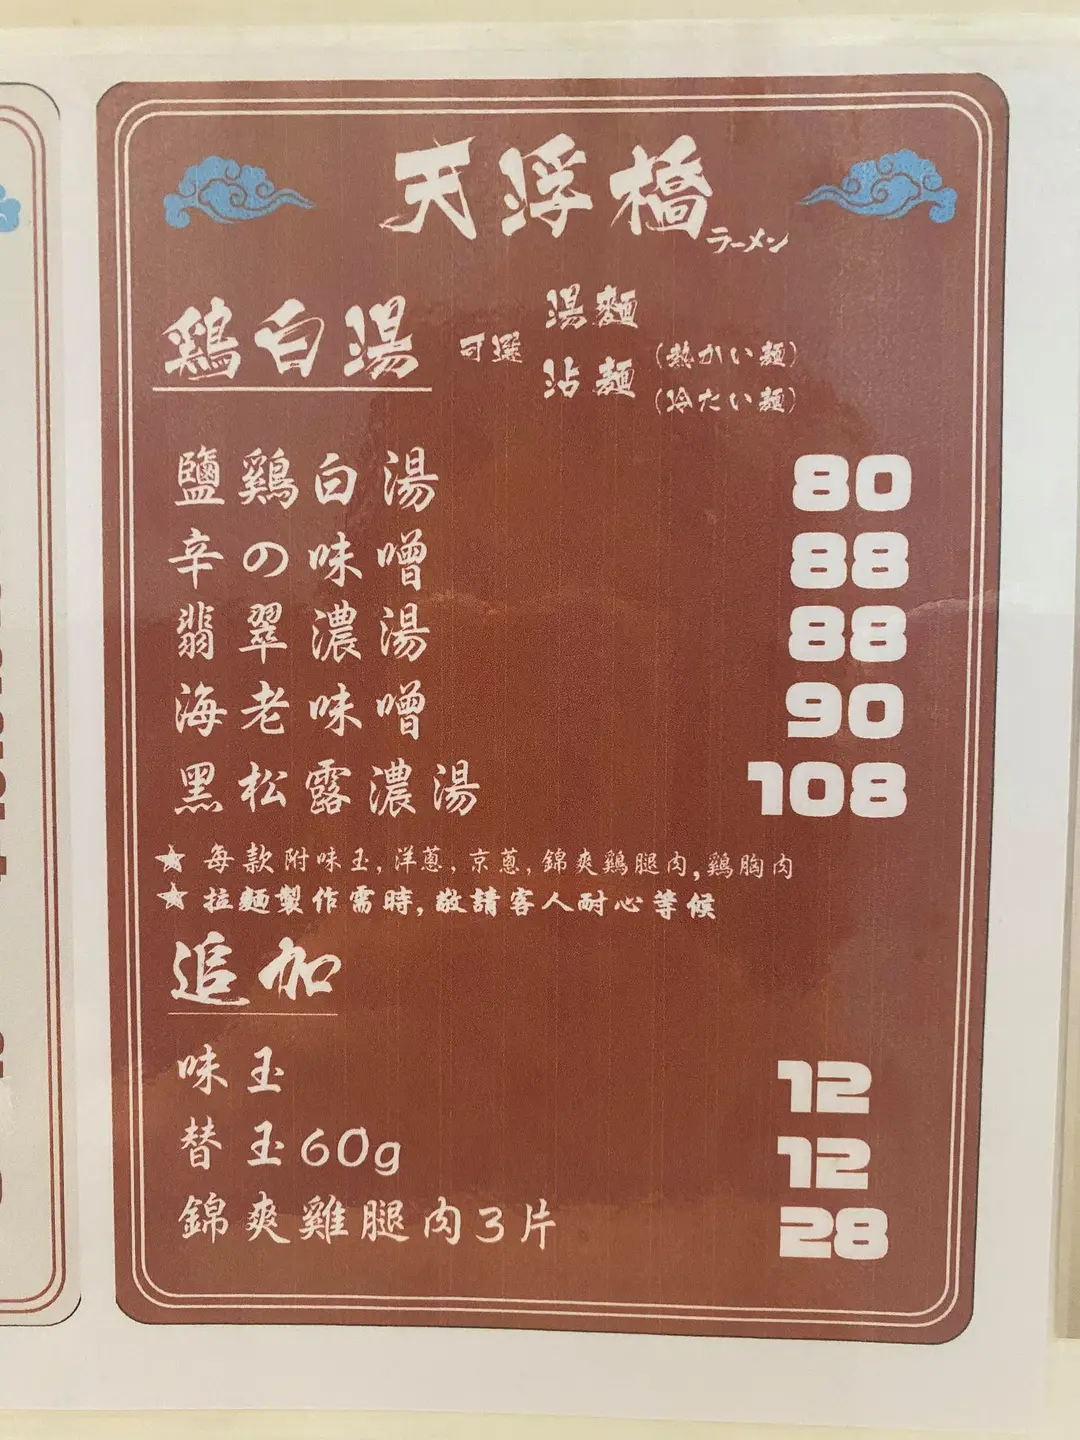 天浮橋
ラーメン
鶏白湯 可選 湯麵
沾麵 (熱かい麵)
(冷たい麵)
鹽鶏白湯 80
辛の味噌 88
翡翠濃湯 88
海老味噌 90
黑松露濃湯 108
★ 每款附味玉,洋蔥,京蔥,錦爽鶏腿肉,鶏胸肉
★ 拉麵製作需時,敬請客人耐心等候
追加
味玉 12
替玉60g 12
錦爽雞腿肉3片 28